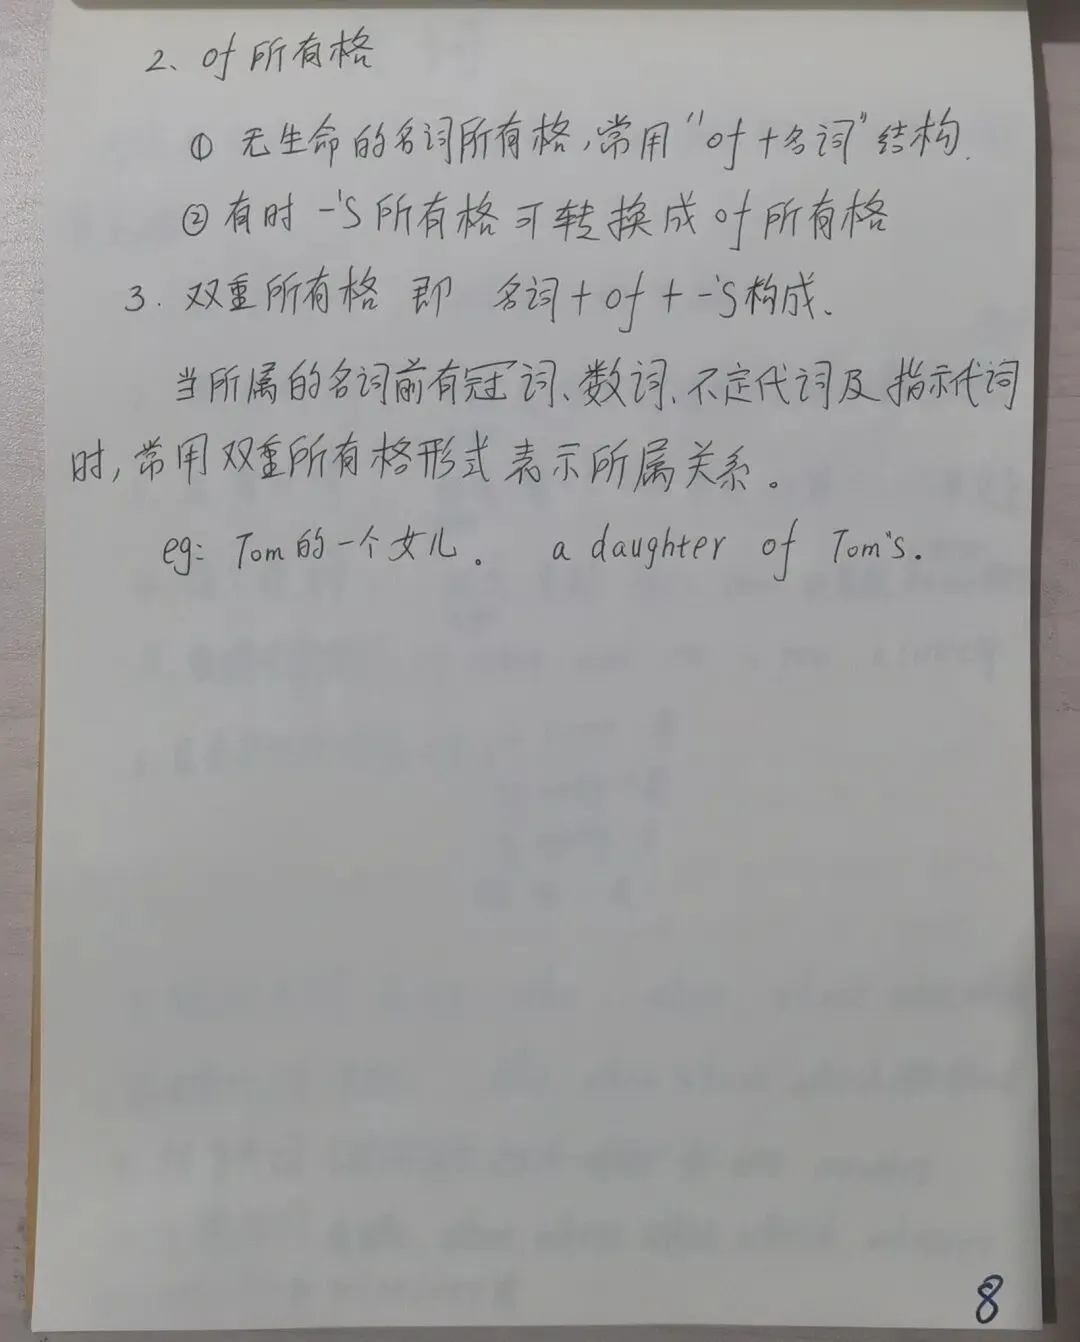 2、of 所有格
① 无生命的名词所有格,常用"of+名词"结构.
② 有时 -'s 所有格可转换成 of 所有格
3. 双重所有格 即 名词+of+-'s构成、
当所属的名词前有冠词、数词、不定代词及指示代词
时,常用双重所有格形式表示所属关系。
eg: Tom的一个女儿。 a daughter of Tom's.
8